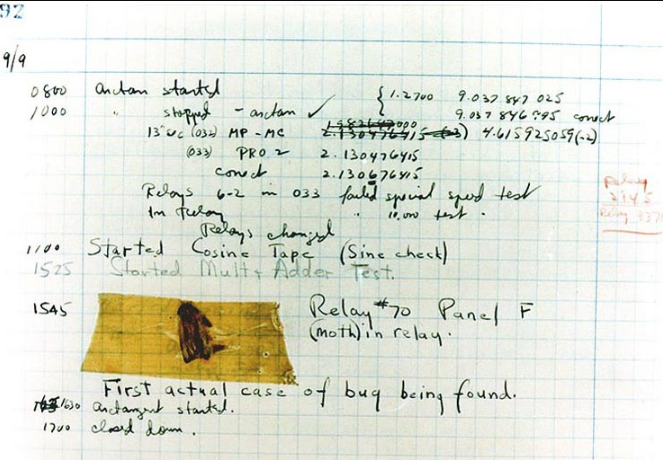 92
9/9
0800 arctan started { 1.2700 9.037 847 025
1000 " stopped - arctan ✓ 9.037 846 995 correct
13"uc (032) MP - MC 2.130476415 (-3) 4.615925059(-2)
(033) PRO 2 2.130476415
correct 2.130676415
Relays 6-2 in 033 failed special speed test
In Relay " 10.000 test .
Relays changed
1100 Started Cosine Tape (Sine check)
1525 Started Mult + Adder Test.
1545 Relay #70 Panel F
(moth) in relay.
First actual case of bug being found.
1630 arctangent started.
1700 closed down .
Relay